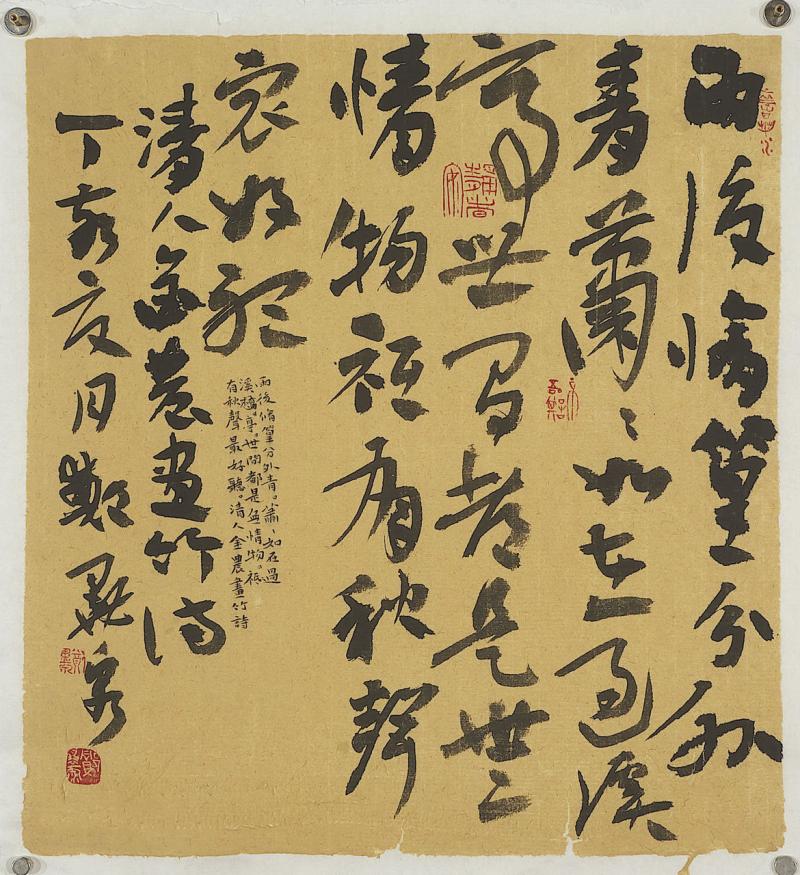 雨後脩篁分外
青蕭〻如在過溪
亭世間都是無
情物祗有秋聲
最好聽
雨後脩篁分外青。蕭、如在過
溪橋亭。世間都是無情物。祗
有秋聲最好聽。清人金農畫竹詩
清人金農畫竹詩
丁亥夏月鄭墨泉